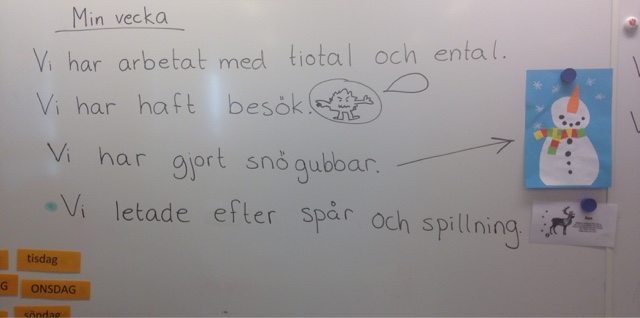 Min vecka
Vi har arbetat med tiotal och ental.
Vi har haft besök.
Vi har gjort snögubbar.
Vi letade efter spår och spillning.
tisdag
G
ONSDAG
söndag